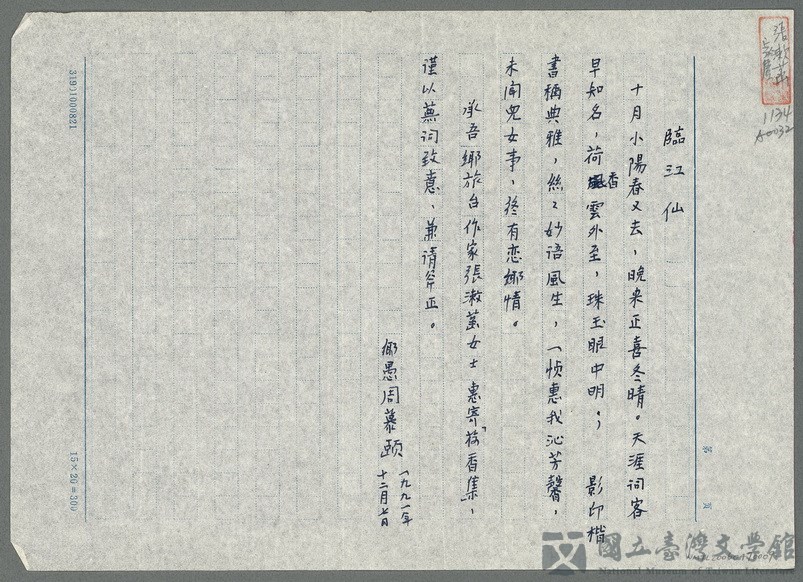 臨江仙
十月小陽春又去，晚來正喜冬晴。天涯詞客
早知名，荷香雲外至，珠玉眼中明。； 影印楷
書稱典雅，絲々妙語風生，一幀惠我沁芳馨，
未聞兒女事，終有恋鄉情。
承吾鄉旅台作家張漱菡女士惠寄「荷香集」，
謹以蕪詞致意，兼請斧正。
鄉愚周慕頤
一九九一年
十二月七日
第 頁
31901000821
15×20=300
1134
A0032
國立臺灣文學館
National Museum of Taiwan Literature